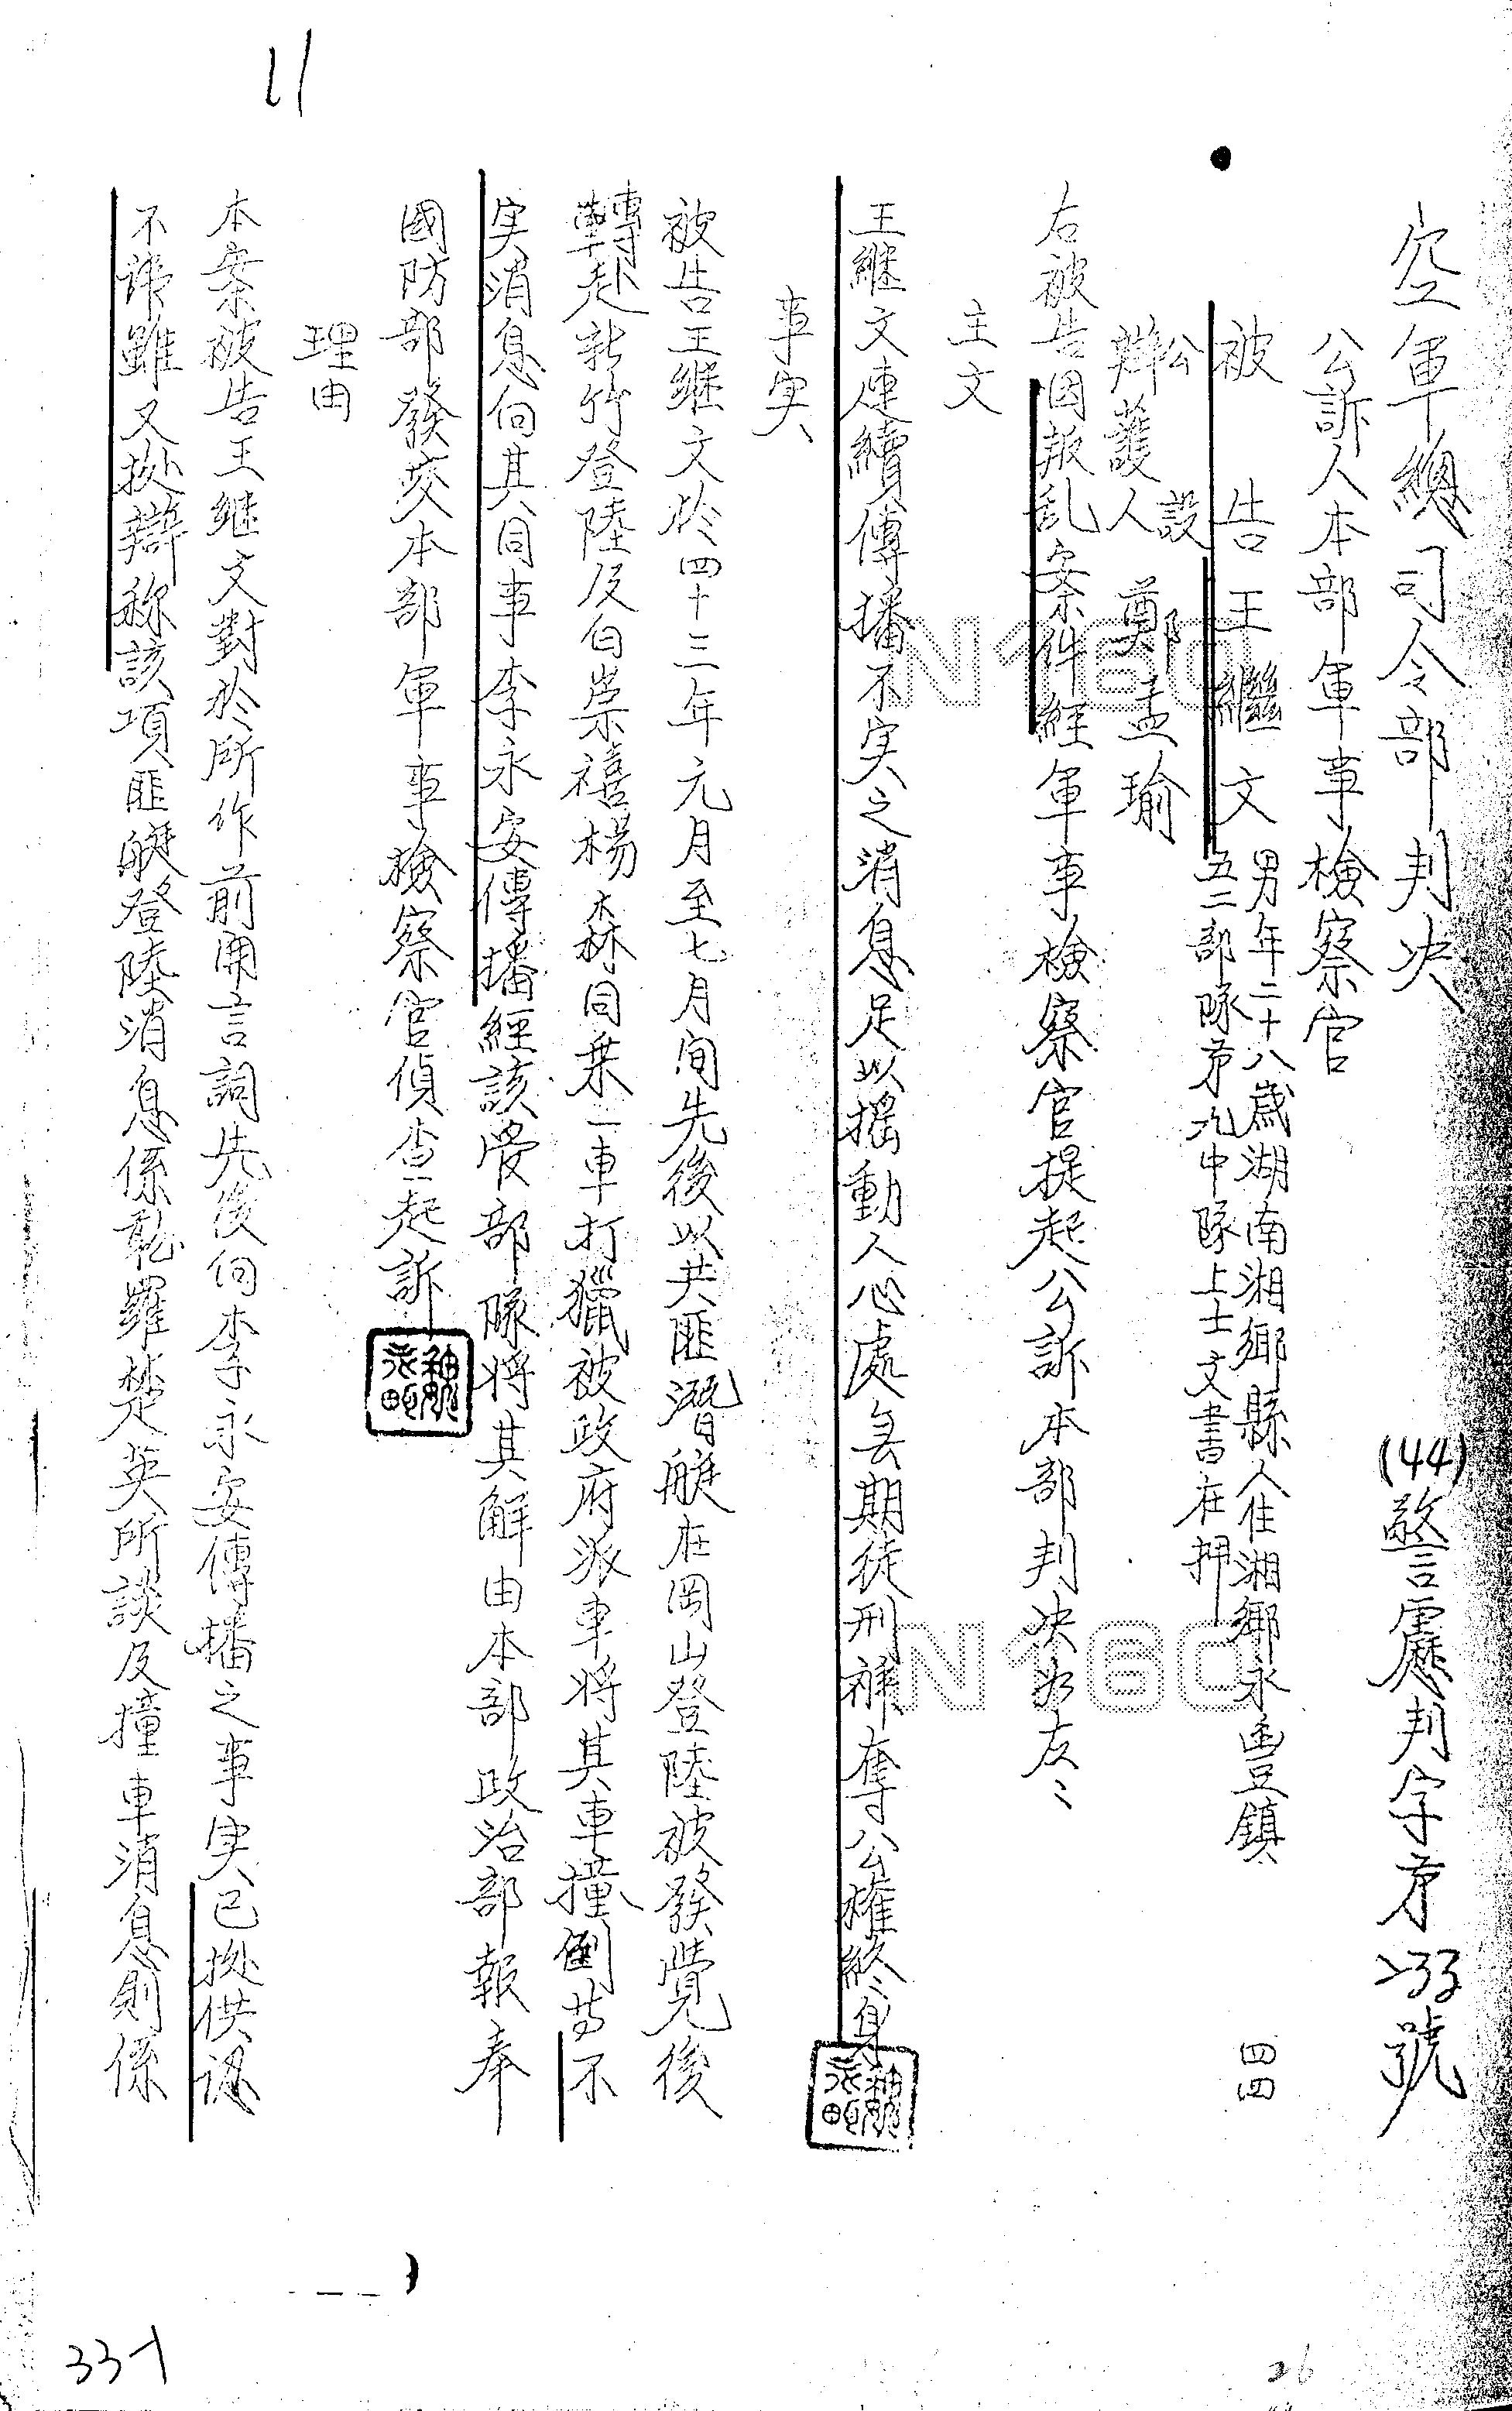 空軍總司令部判決
(44)警□判字第233號
公訴人本部軍事檢察官
被告王繼文男年二十八歲湖南湘鄉縣人住湘鄉永豐鎮
五二部隊第九中隊上士文書在押
四四
公設
辯護人鄭孟瑜
右被告因叛乱案件經軍事檢察官提起公訴本部判決如左:
主文
王繼文連續傳播不实之消息足以搖動人心處無期徒刑褫奪公權終身
事実
被告王继文於四十三年元月至七月间先後以共匪潛艇在岡山登陸被發覺後
轉赴新竹登陸及白崇禧楊森同乘一車打獵被政府派車將其車撞倒等不
実消息向其同事李永安傳播經該管部隊將其解由本部政治部報奉
國防部發交本部軍事檢察官偵查起訴
理由
本案被告王继文對於所作前開言詞先後向李永安傳播之事実已據供認
不諱雖又據辯称該項匪艇登陸消息係聽羅楚英所談及撞車消息則係
11
33-1
26
N160
N160